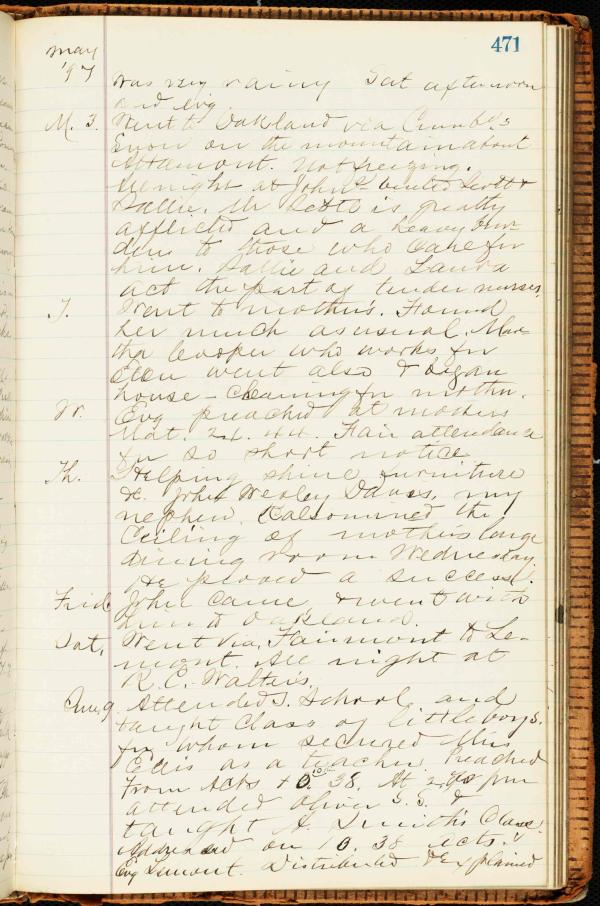 471
May
'97
was very rainy Sat afternoon
and evg.
M. 3. Went to Oakland via Cumb'd.
Snow on the mountain about
Altamont. Not freezing.
All night at John's visited Scott &
Sallie. Mr Scott is greatly
afflicted and a heavy bur-
den to those who care for
him. Sallie and Laura
act the part of tender nurses.
T. Went to mother's. Found
her much as usual. Mar-
tha Cooper who works for
Ellen went also & began
house-cleaning for mother.
W. Evg preached at mothers
Mat. 24.44. Fair attendance
for so short notice.
Th. Helping shine furniture
&c. John Wesley Davis, my
nephew, Kalsomined the
Ceiling of mother's large
dining room Wednesday.
He proved a success.
Frid. John came & went with
him to Oakland.
Sat. Went via Fairmont to Le-
mont. All night at
R. C. Walter's.
9. Attended S. School and
taught class of little boys.
for whom secured Miss
Ellis as a teacher. Preached
from Acts 10. 38. At 2 pm
attended Oliver S. S. &
taught A. Smith's Class.
Addressed on 10.38 Acts.
Evg Lemont. Distributed & Explained